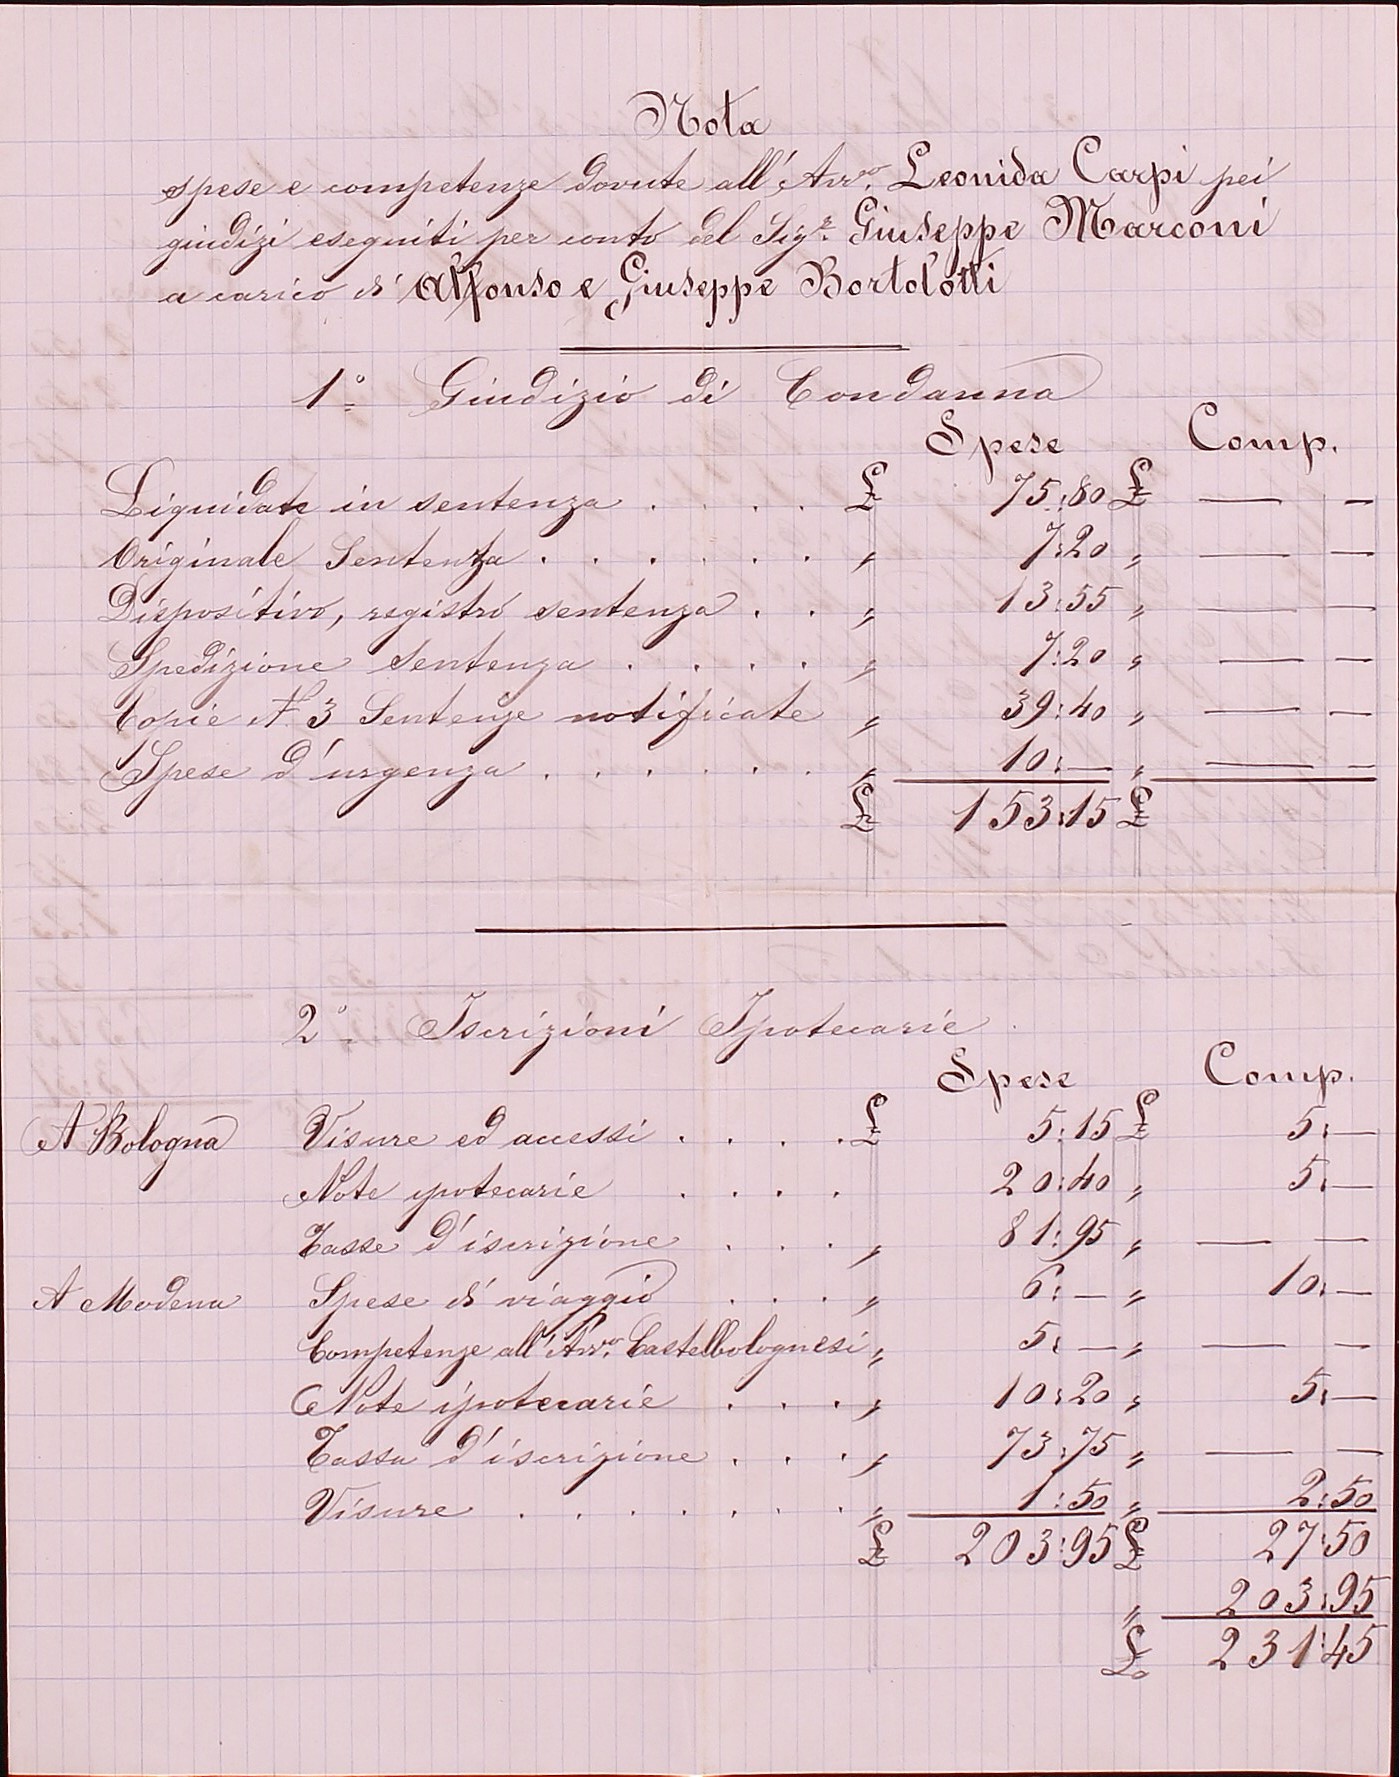 Nota
spese e competenze dovute all'Avv.º Leonida Carpi pei
giudizi eseguiti per conto del Sig.r Giuseppe Marconi
a carico di Alfonso e Giuseppe Bortolotti
1º Giudizio di Condanna
Spese Comp.
Liquidate in sentenza . . . . £ 75:80 £ — —
Originale Sentenza . . . . . . „ 7:20 „ — —
Dispositivo, registro sentenza . . „ 13:55 „ — —
Spedizione sentenza . . . . „ 7:20 „ — —
Copie Nº 3 Sentenze notificate „ 39:40 „ — —
Spese d'urgenza . . . . . . „ 10:— „ — —
£ 153:15 £
2º Iscrizioni Ipotecarie
Spese Comp.
A Bologna Visure ed accessi . . . . £ 5:15 £ 5:—
Note ipotecarie . . . . 20:40 „ 5:—
Tasse d'iscrizione . . . „ 81:95 „ — —
A Modena Spese di viaggio . . . „ 6:— „ 10:—
Competenze all'Avv.º Castelbolognesi „ 5:— „ — —
Note ipotecarie . . . „ 10:20 „ 5:—
Tassa d'iscrizione . . . „ 73:75 „ — —
Visure . . . . . . . „ 1:50 „ 2:50
£ 203:95 £ 27:50
„ 203:95
£ 231:45